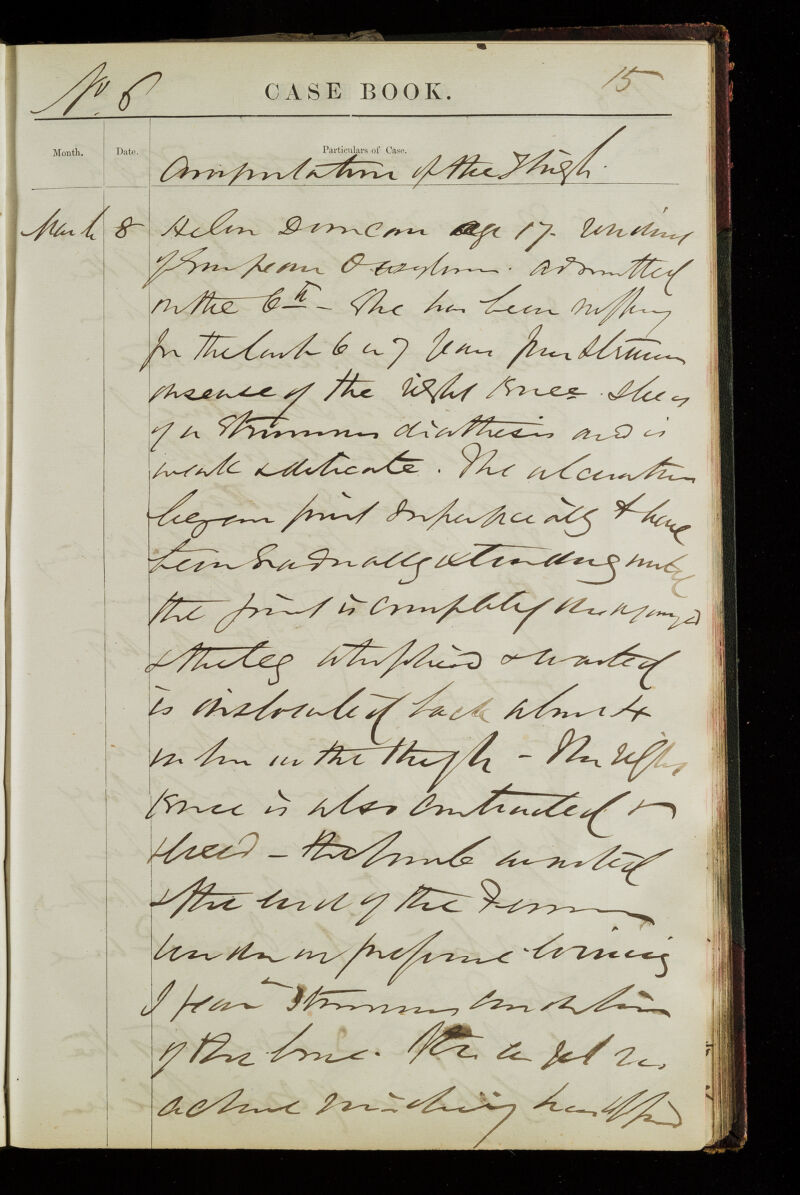 No. 6 CASE BOOK. 15
Month. Date. Particulars of Case.
Amputation of the Thigh.
March 8 Helen Duncan age 17. Resident
of European Asylum. admitted
on the 6th - She has been suffering
for the last 6 or 7 years from Strumous
disease of the right Knee. She is
of a Strumous diathesis and is
weak & delicate. The ulceration
began first superficially & have
been gradually extending until
the joint is completely disorganized
& the leg atrophied & wasted
is dislocated back about 4
in the thigh - The right
Knee is also contracted &
fixed - The limb wasted
& the end of the Femur
tender on pressure
I fear Strumous condition
of the bone. There is as yet no
active mischief